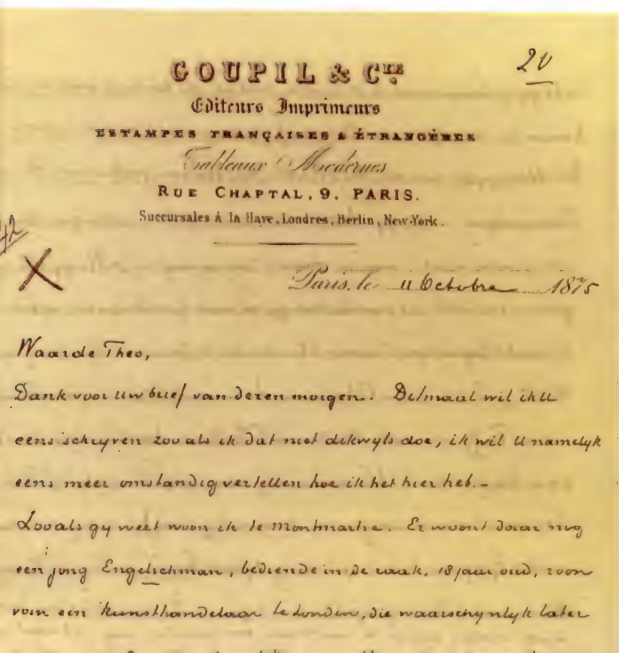 20
GOUPIL & CIE
Editeurs Imprimeurs
ESTAMPES FRANÇAISES & ÉTRANGÈRES
Tableaux Modernes
RUE CHAPTAL, 9, PARIS.
Succursales à la Haye, Londres, Berlin, New-York.
42
X
Paris, le 11 Octobre 1875
Waarde Theo,
Dank voor uw brief van deren morgen. Ditmaal wil ik U
eens schryven zoo als ik dat niet dikwyls doe, ik wil U namelyk
eens meer omstandig vertellen hoe ik het hier heb.-
Zooals gy weet woon ik te Montmartre. Er woont daar nog
een jong Engelschman, bediende in de zaak, 18 jaar oud, zoon
van een kunsthandelaar te Londen, die waarschynlyk later